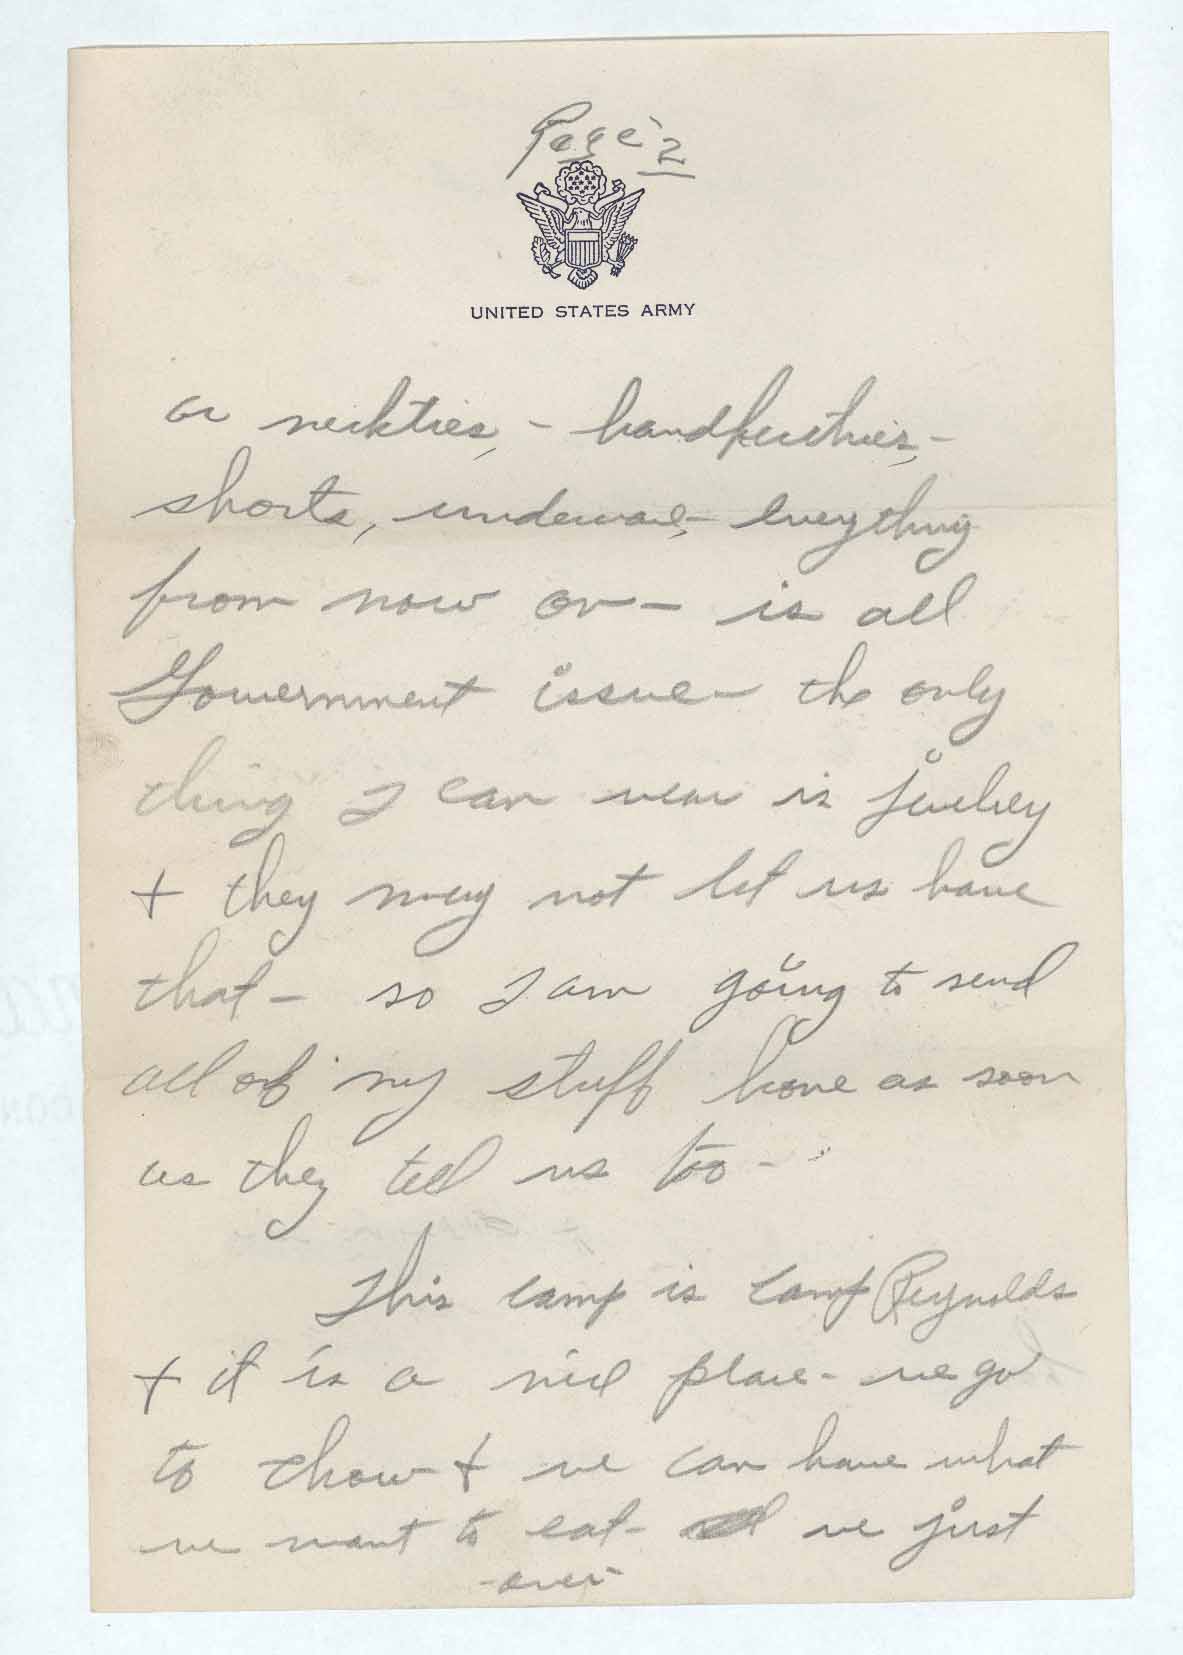 Page 2
UNITED STATES ARMY
or neckties, - handkerchies, -
shorts, underware, - everything
from now on - is all
Government issue - the only
thing I can wear is jewlry
+ they may not let us have
that - so I am going to send
all of my stuff home as soon
as they tell us too -
This camp is Camp Reynolds
+ it is a nice place - we go
to chow + we can have what
we want to eat - we just
- over -